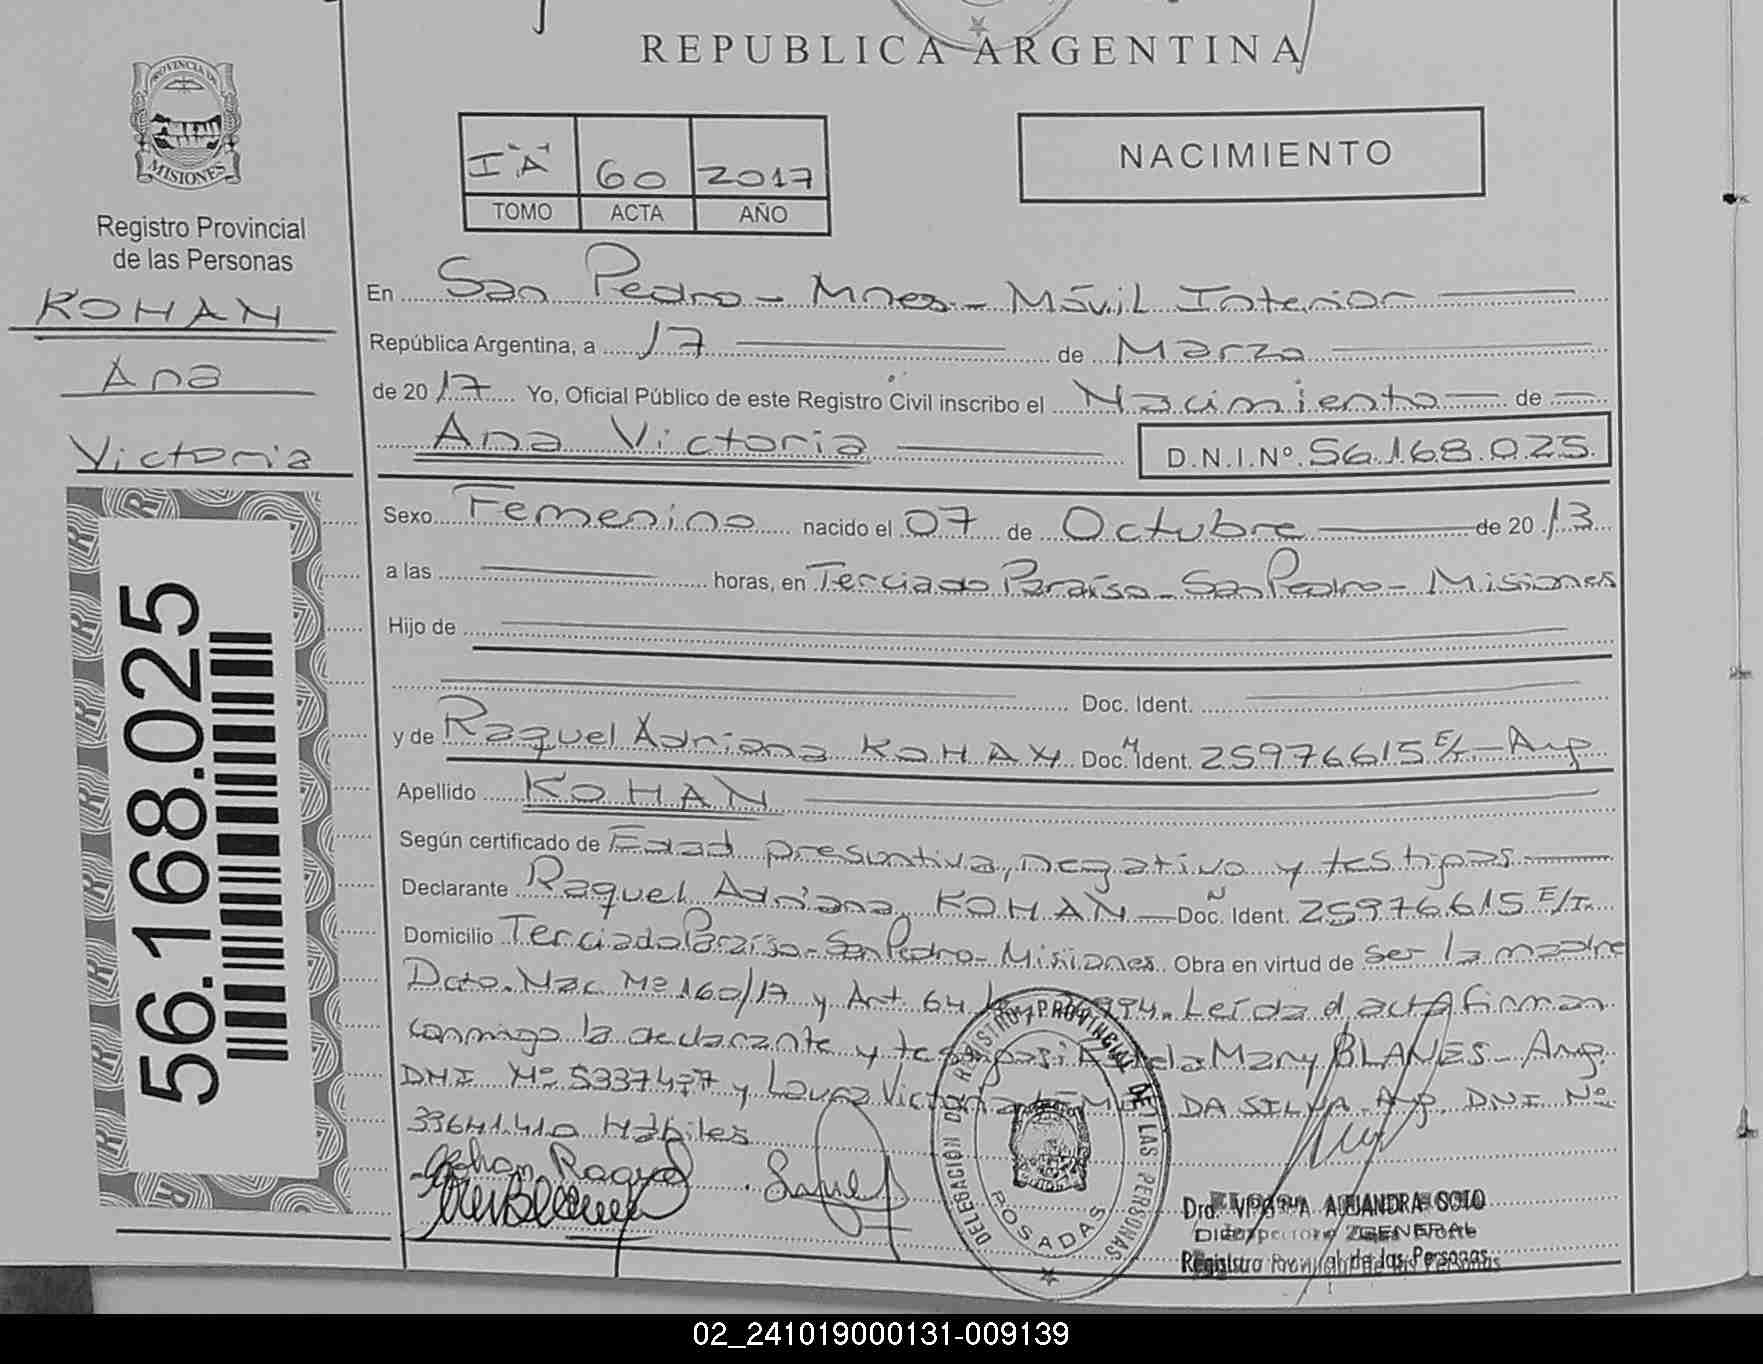 REPUBLICA ARGENTINA
PROVINCIA DE
MISIONES
Registro Provincial
de las Personas
KOHAN
Ana
Victoria
56.168.025
I "A" 60 2017
TOMO ACTA AÑO
NACIMIENTO
En San Pedro - Mnes - Móvil Interior
República Argentina, a 17 de Marzo
de 2017 Yo, Oficial Público de este Registro Civil inscribo el Nacimiento de
Ana Victoria D.N.I.Nº 56.168.025
Sexo Femenino nacido el 07 de Octubre de 2013
a las horas, en Terciado Paraíso - San Pedro - Misiones
Hijo de
Doc. Ident.
y de Raquel Adriana KOHAN Doc. N Ident. 25976615 E/T - Arg
Apellido KOHAN
Según certificado de Edad presuntiva, negativo y testigos
Declarante Raquel Adriana KOHAN Doc. N Ident. 25976615 E/T.
Domicilio Terciado Paraíso - San Pedro - Misiones. Obra en virtud de ser la madre
Dcto. Nac Nº 160/17 y Art. 64 Leída el acta firman
conmigo la declarante y testigos Mary BLANES - Arg.
DNI Nº 5337477 y Laura Victoria DA SILVA. Arg. DNI Nº
33641410 Hábiles
Kohan Raquel
DELEGACIÓN DEL REGISTRO PROVINCIAL DE LAS PERSONAS
POSADAS
Dra. ALEJANDRA SOTO
GENERAL
Registro Provincial de las Personas
02_241019000131-009139